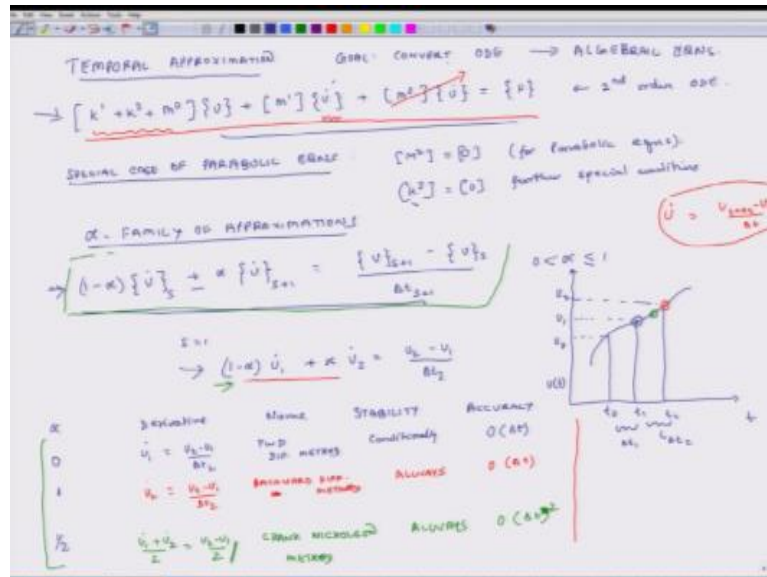 TEMPORAL APPROXIMATION GOAL: CONVERT ODE → ALGEBRAIC EQNS.
→ [k¹ + k² + m⁰]{u} + [m¹]{u̇} + [m²]{ü} = {F} ← 2nd order ODE.
SPECIAL CASE OF PARABOLIC EQNS [m²] = [0] (for Parabolic eqns).
[k²] = [0] further special condition
α - FAMILY OF APPROXIMATIONS
→ (1-α){u̇}ₛ + α{u̇}ₛ₊₁ = ({u}ₛ₊₁ - {u}ₛ) / Δtₛ₊₁
0 < α ≤ 1
s=1
→ (1-α) u̇₁ + α u̇₂ = (u₂ - u₁) / Δt₂
α Derivative Name STABILITY ACCURACY
0 u̇₁ = (u₂-u₁)/Δt₂ FWD DIF. METHOD Conditionally O(Δt)
1 u̇₂ = (u₂-u₁)/Δt₂ BACKWARD DIFF. METHOD ALWAYS O(Δt)
½ (u̇₁+u̇₂)/2 = (u₂-u₁)/2 CRANK NICHOLSON METHOD ALWAYS O(Δt)²
u₂
u₁
u₀
u(t)
t₀ t₁ t₂ t
Δt₁ Δt₂